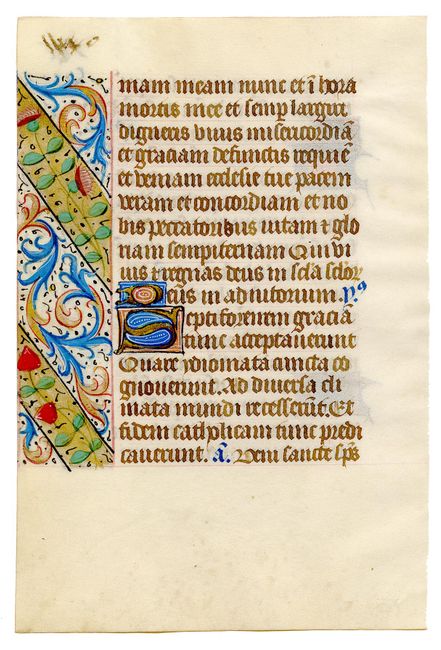 mam meam nunc et ī hora
mortis mee et semp largiri
digneris viuis misericordiā
et graciam defunctis requiē
et veniam ecclesie tue pacem
veram et concordiam et no
bis peccatoribus uitam ⁊ glo
riam sempiternam Qui vi
uis ⁊ regnas deus in scła scłoꝝ
Deus in adiutorium. yꝰ
Septiformem graciā
tunc acceptauerunt
Quare ydiomata cuncta co
gnouerunt. Ad diuersa cli
mata mundi recesserūt. Et
fidem catholicam tunc predi
cauerunt. ā. Veni sancte sp̄s